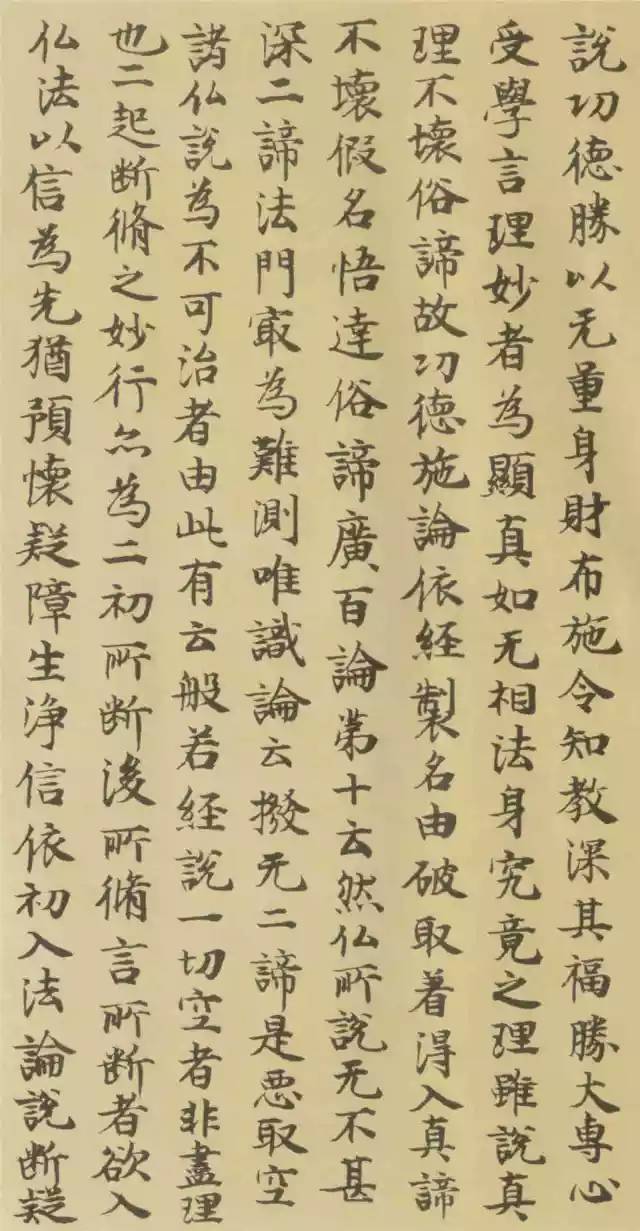 說功德勝以无量身財布施令知教深其福勝大專心
受學言理妙者為顯真如无相法身究竟之理雖說真
理不壞俗諦故功德施論依經製名由破取著得入真諦
不壞假名悟達俗諦廣百論第十云然仏所說无不甚
深二諦法門㝡為難測唯識論云撥无二諦是惡取空
諸仏說為不可治者由此有云般若經說一切空者非盡理
也二起断脩之妙行亦為二初所断後所脩言所断者欲入
仏法以信為先猶預懷疑障生淨信依初入法論說断疑